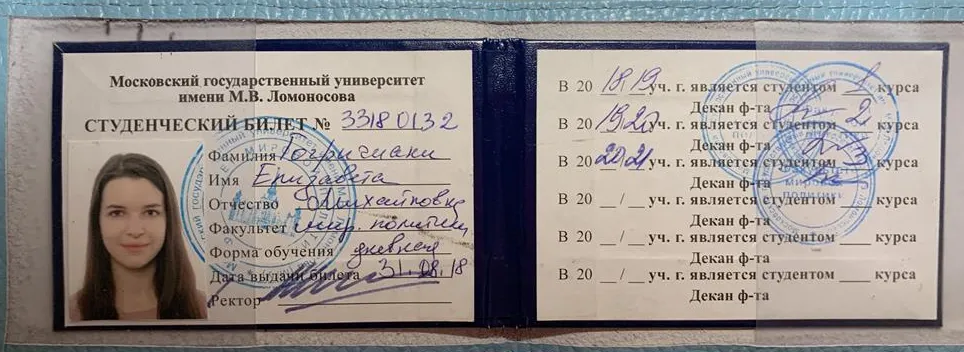 Московский государственный университет
имени М.В. Ломоносова
СТУДЕНЧЕСКИЙ БИЛЕТ № 33180132
Фамилия
Имя Елизавета
Отчество Михайловна
Факультет мир. политики
Форма обучения дневная
Дата выдачи билета 31.08.18
Ректор
В 20 18/19 уч. г. является студентом 1 курса
Декан ф-та
В 20 19/20 уч. г. является студентом 2 курса
Декан ф-та
В 20 20/21 уч. г. является студентом 3 курса
Декан ф-та
В 20 __ / __ уч. г. является студентом ___ курса
Декан ф-та
В 20 __ / __ уч. г. является студентом ___ курса
Декан ф-та
В 20 __ / __ уч. г. является студентом ___ курса
Декан ф-та